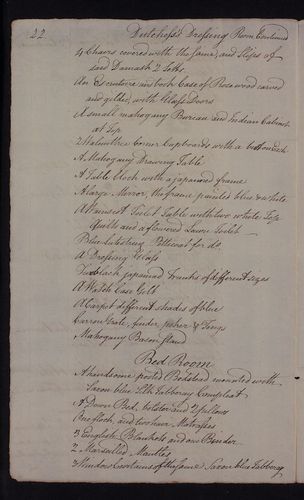 22 Dutchess's Dressing Room Continued
4 Chairs covered with the same, and Slips of
said Damask 2 Setts
An Escrutoire and book Case of Rosewood carved
and gilded, with Glass Doors
A small mahogany Bureau and Indian Cabinet
at Top
2 Walnuttree Corner Cupboards with a on Each
A Mahogany Drawing Table
A Table Clock with a japanned frame
A large Mirror, the frame painted blue & white
A Wainscot Toilet Table with two white Top
Quilts and a flowered Lawn Toilet
Blue Lutestring Petticoat for do.
A Dressing Glass
Two black japanned Trunks of different sizes
A Watch Case Gilt
A Carpet different shades of blue
Carron Grate, fender, poker & Tongs
Mahogany Bason Stand
Bed Room
A handsome posted Bedstead mounted with
Saxon blue Silk Tabberay Compleat
A Down Bed, bolster and 2 pillows
One flock, and two hair Matrasses
3 English Blankets and one Binder
2 Marseilled Mantles
3 Window Curtains of the same Saxon blue Tabberay